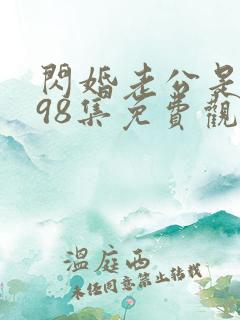 閃婚老公是
98集免費觀
溫庭西
未經同意禁止轉載